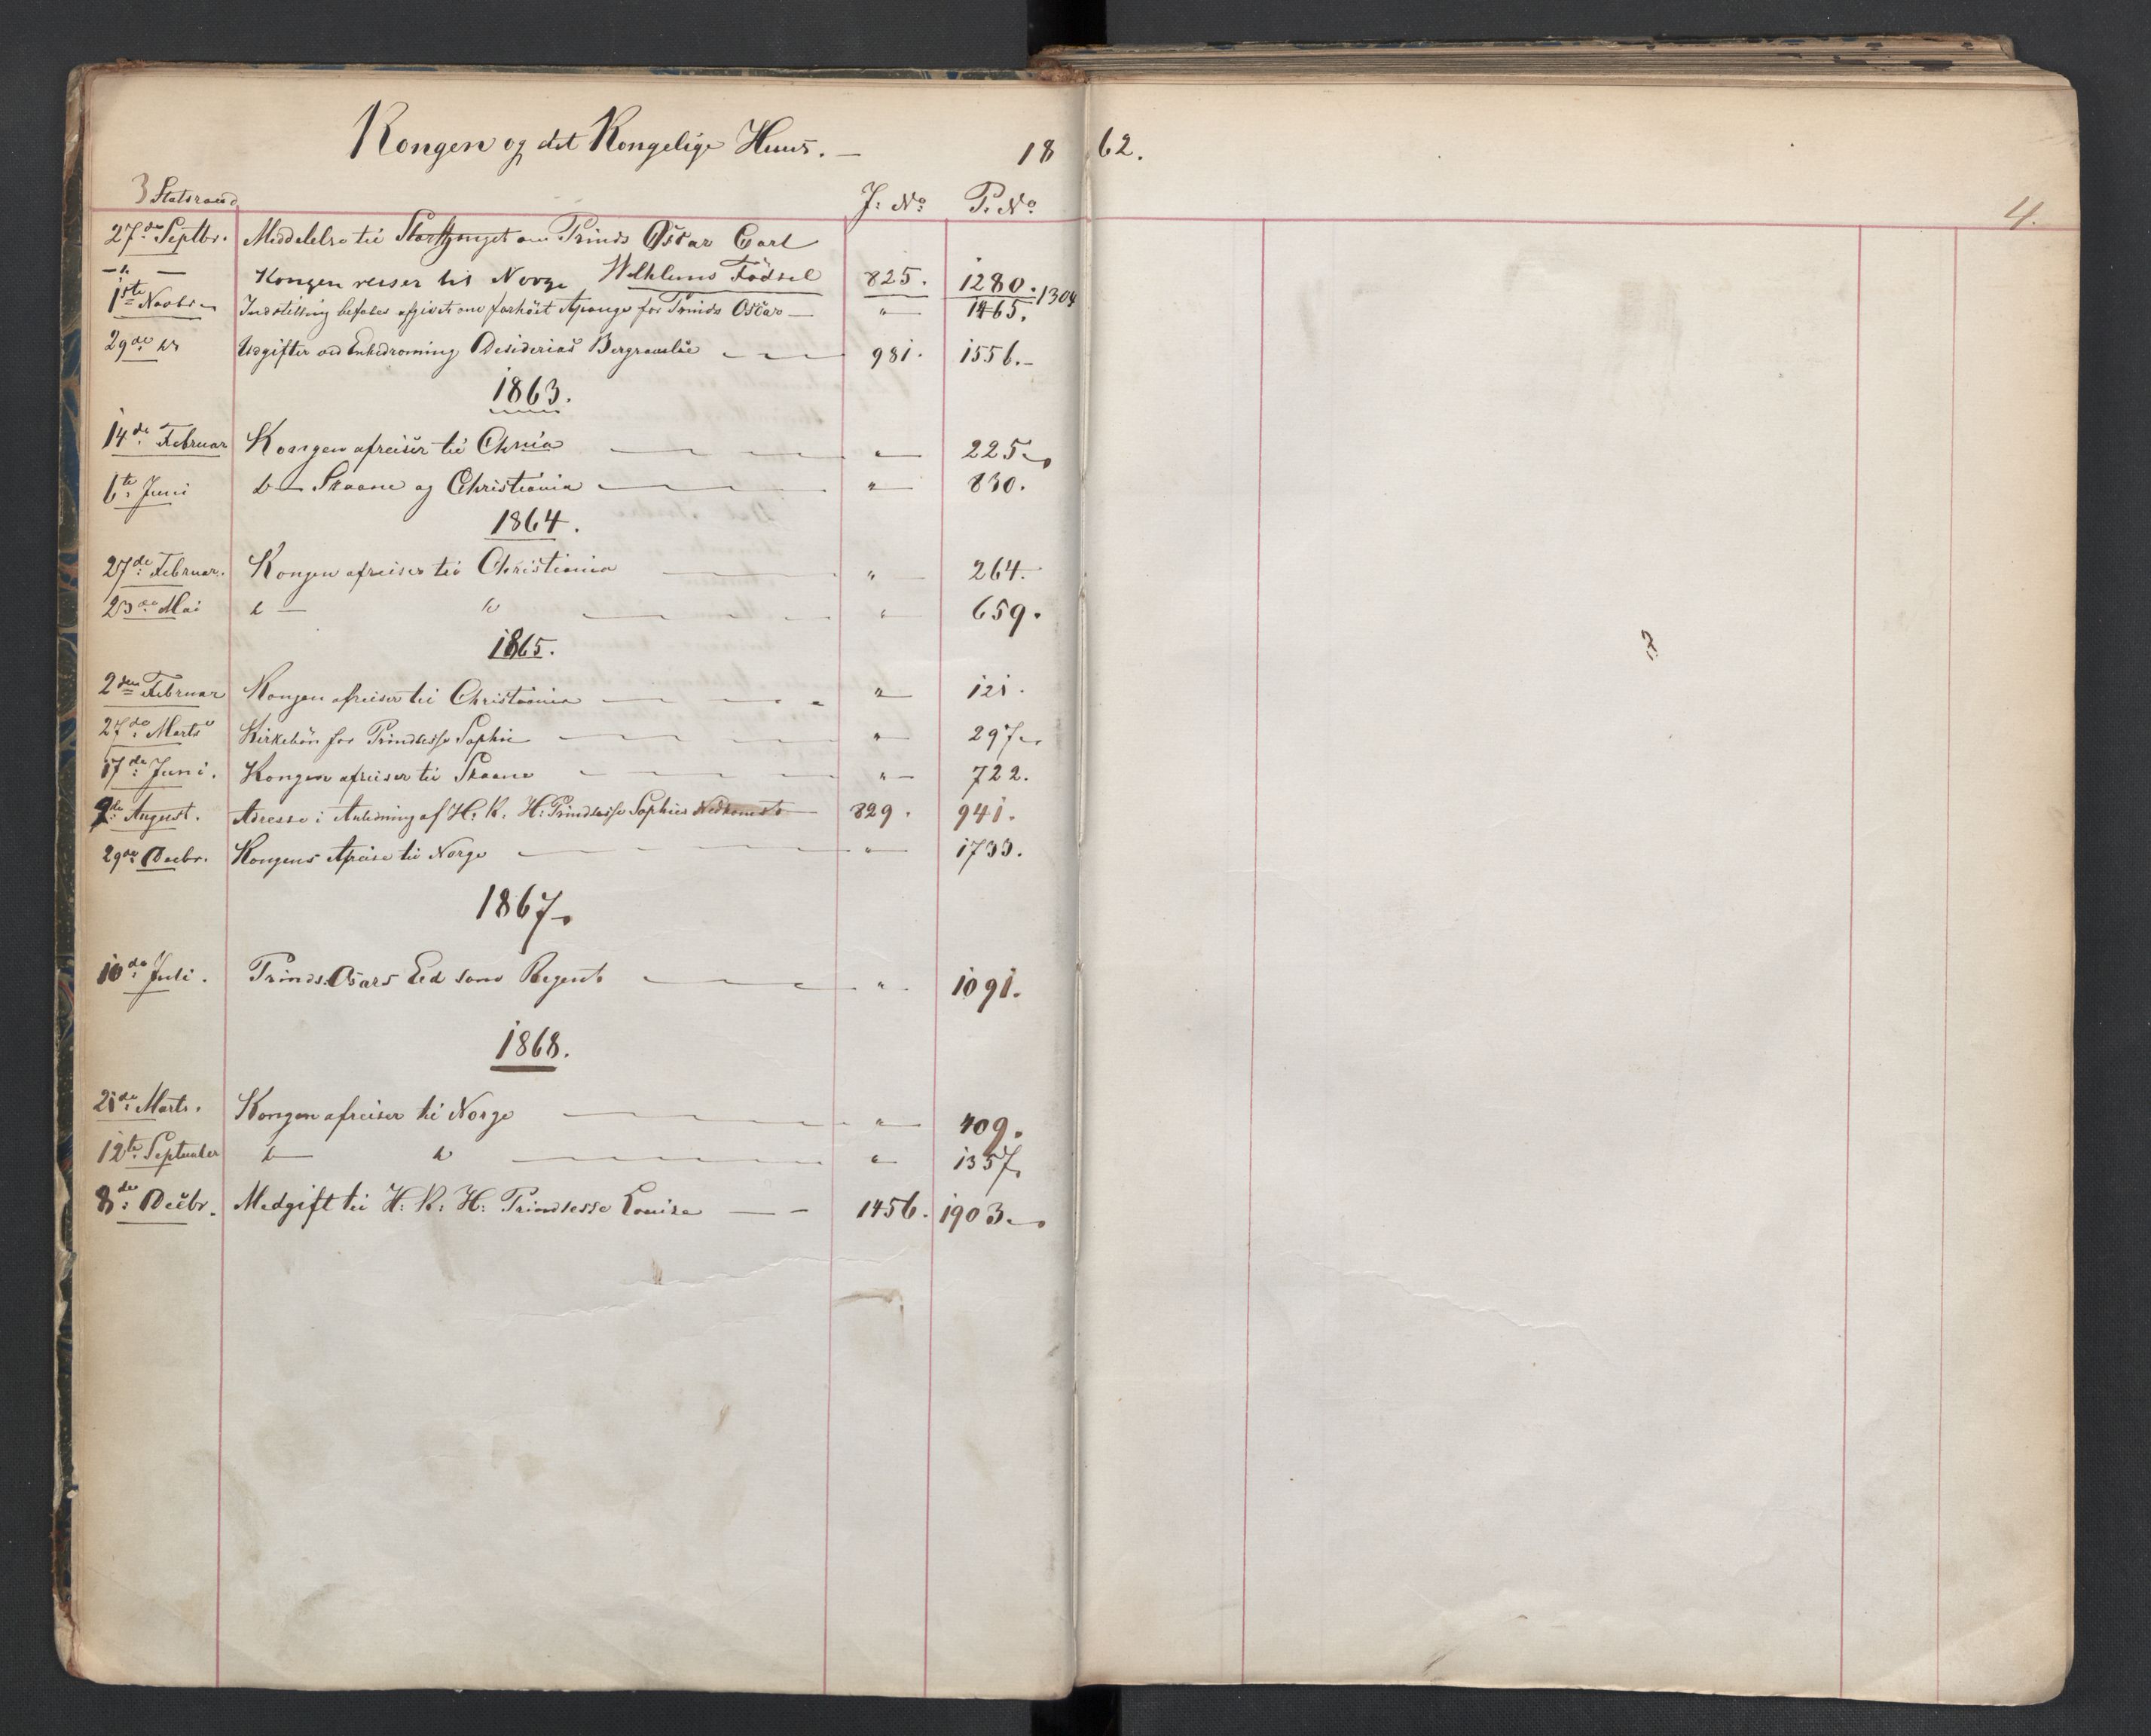 Kongen og det Kongelige Huus. — 1862.
3 Statsraad J: No P. No
4.
27de Septbr. Meddelelse til Storthinget om Prinds Oscar Carl
Wilhelms Födsel 825. 1280.
— " — Kongen reiser til Norge 1304
1ste Novbr. Indstilling befales afgivet om forhöiet Apanage for Prinds Oscar — " — 1465.
29de do Udgifter ved Enkedronning Desiderias Begravelse — 981. 1556.-
1863.
14de Februar Kongen afreiser til Chnia — " — 225.
6te Juni do — Skaane og Christiania — " — 830.
1864.
27de Februar. Kongen afreiser til Christiania — " — 264.
23de Mai do — do — " — 659.
1865.
2den Februar Kongen afreiser til Christiania — " — 121.
27de Marts Kirkebön for Prindsesse Sophie — " — 297.
17de Juni. Kongen afreiser til Skaane — " — 722.
9de August. Adresse i Anledning af H. K. H: Prindsesse Sophies Nedkomst — 829. 941.
29de Decbr. Kongens Afreise til Norge — " — 1733.
1867.
10de Juli. Prinds Oscars Eed som Regent — " — 1091.
1868.
21de Marts. Kongen afreiser til Norge — " — 409.
12te September do — do — " — 1357.
8de Decbr. Medgift til H. K. H: Prindsesse Louise — 1456. 1903.